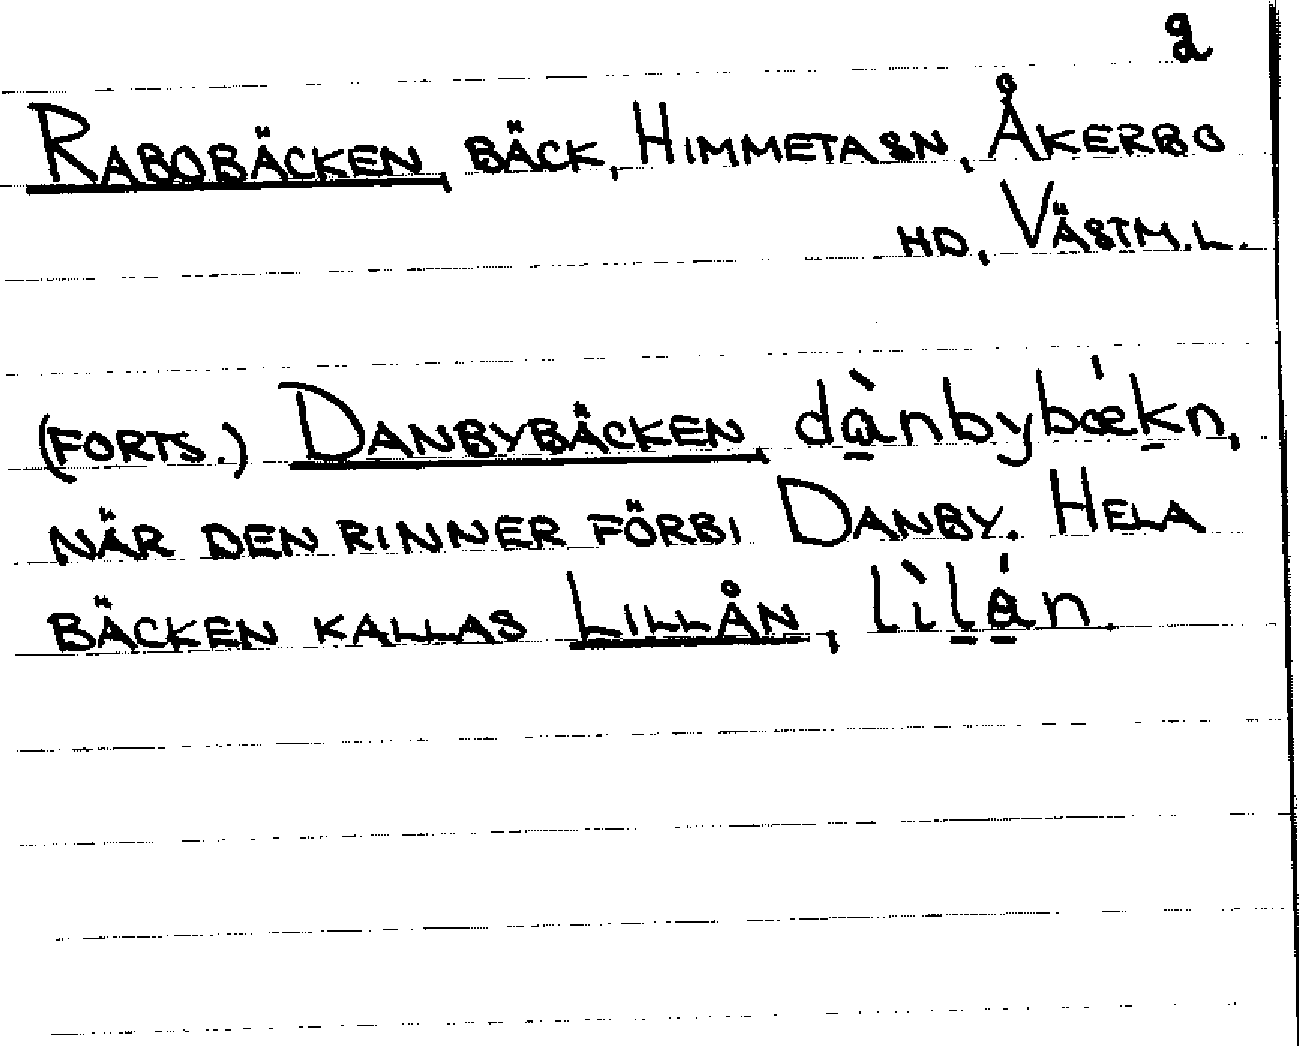 2
RABOBÄCKEN, BÄCK, HIMMETA SN, ÅKERBO
HD, VÄSTM.L.
(FORTS.) DANBYBÄCKEN, dà̠nbybǽk̠n,
NÄR DEN RINNER FÖRBI DANBY. HELA
BÄCKEN KALLAS LILLÅN, lìl̠á̠n.